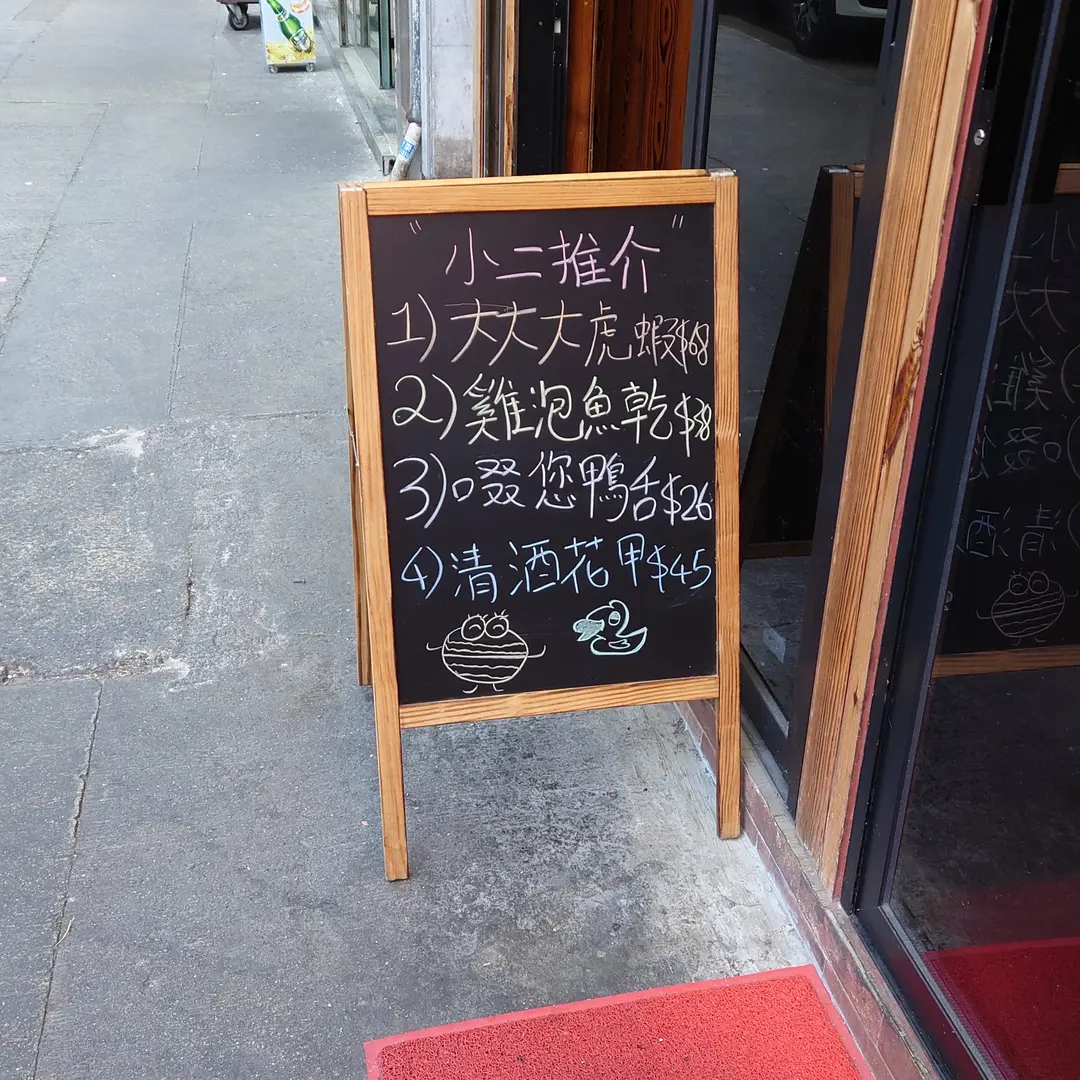 "小二推介"
1)大大大虎蝦$68
2)雞泡魚乾$38
3)啜您鴨舌$26
4)清酒花甲$45